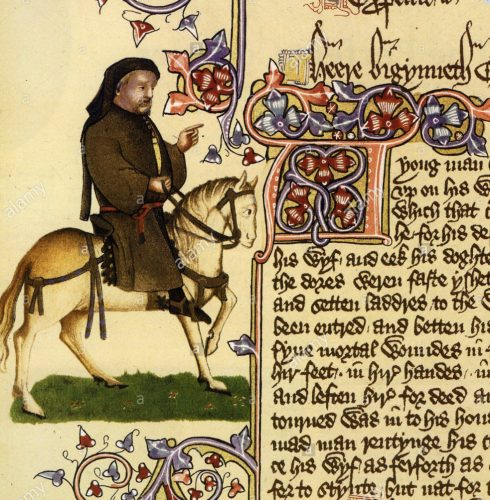 Heere bigynneth
yong man
vp on his
Which that
he for his de
his wyf and eek his doghte
the dores weren faste yshet
and setten laddres to the W
been entred / and betten his
fyue mortal woundes in
hir feet / in hir handes / in
and leften hir for deed an
tourned was in to his hous
mad man rentynge his c
his wyf as ferforth as
for to stynte / but nat for t
alamy